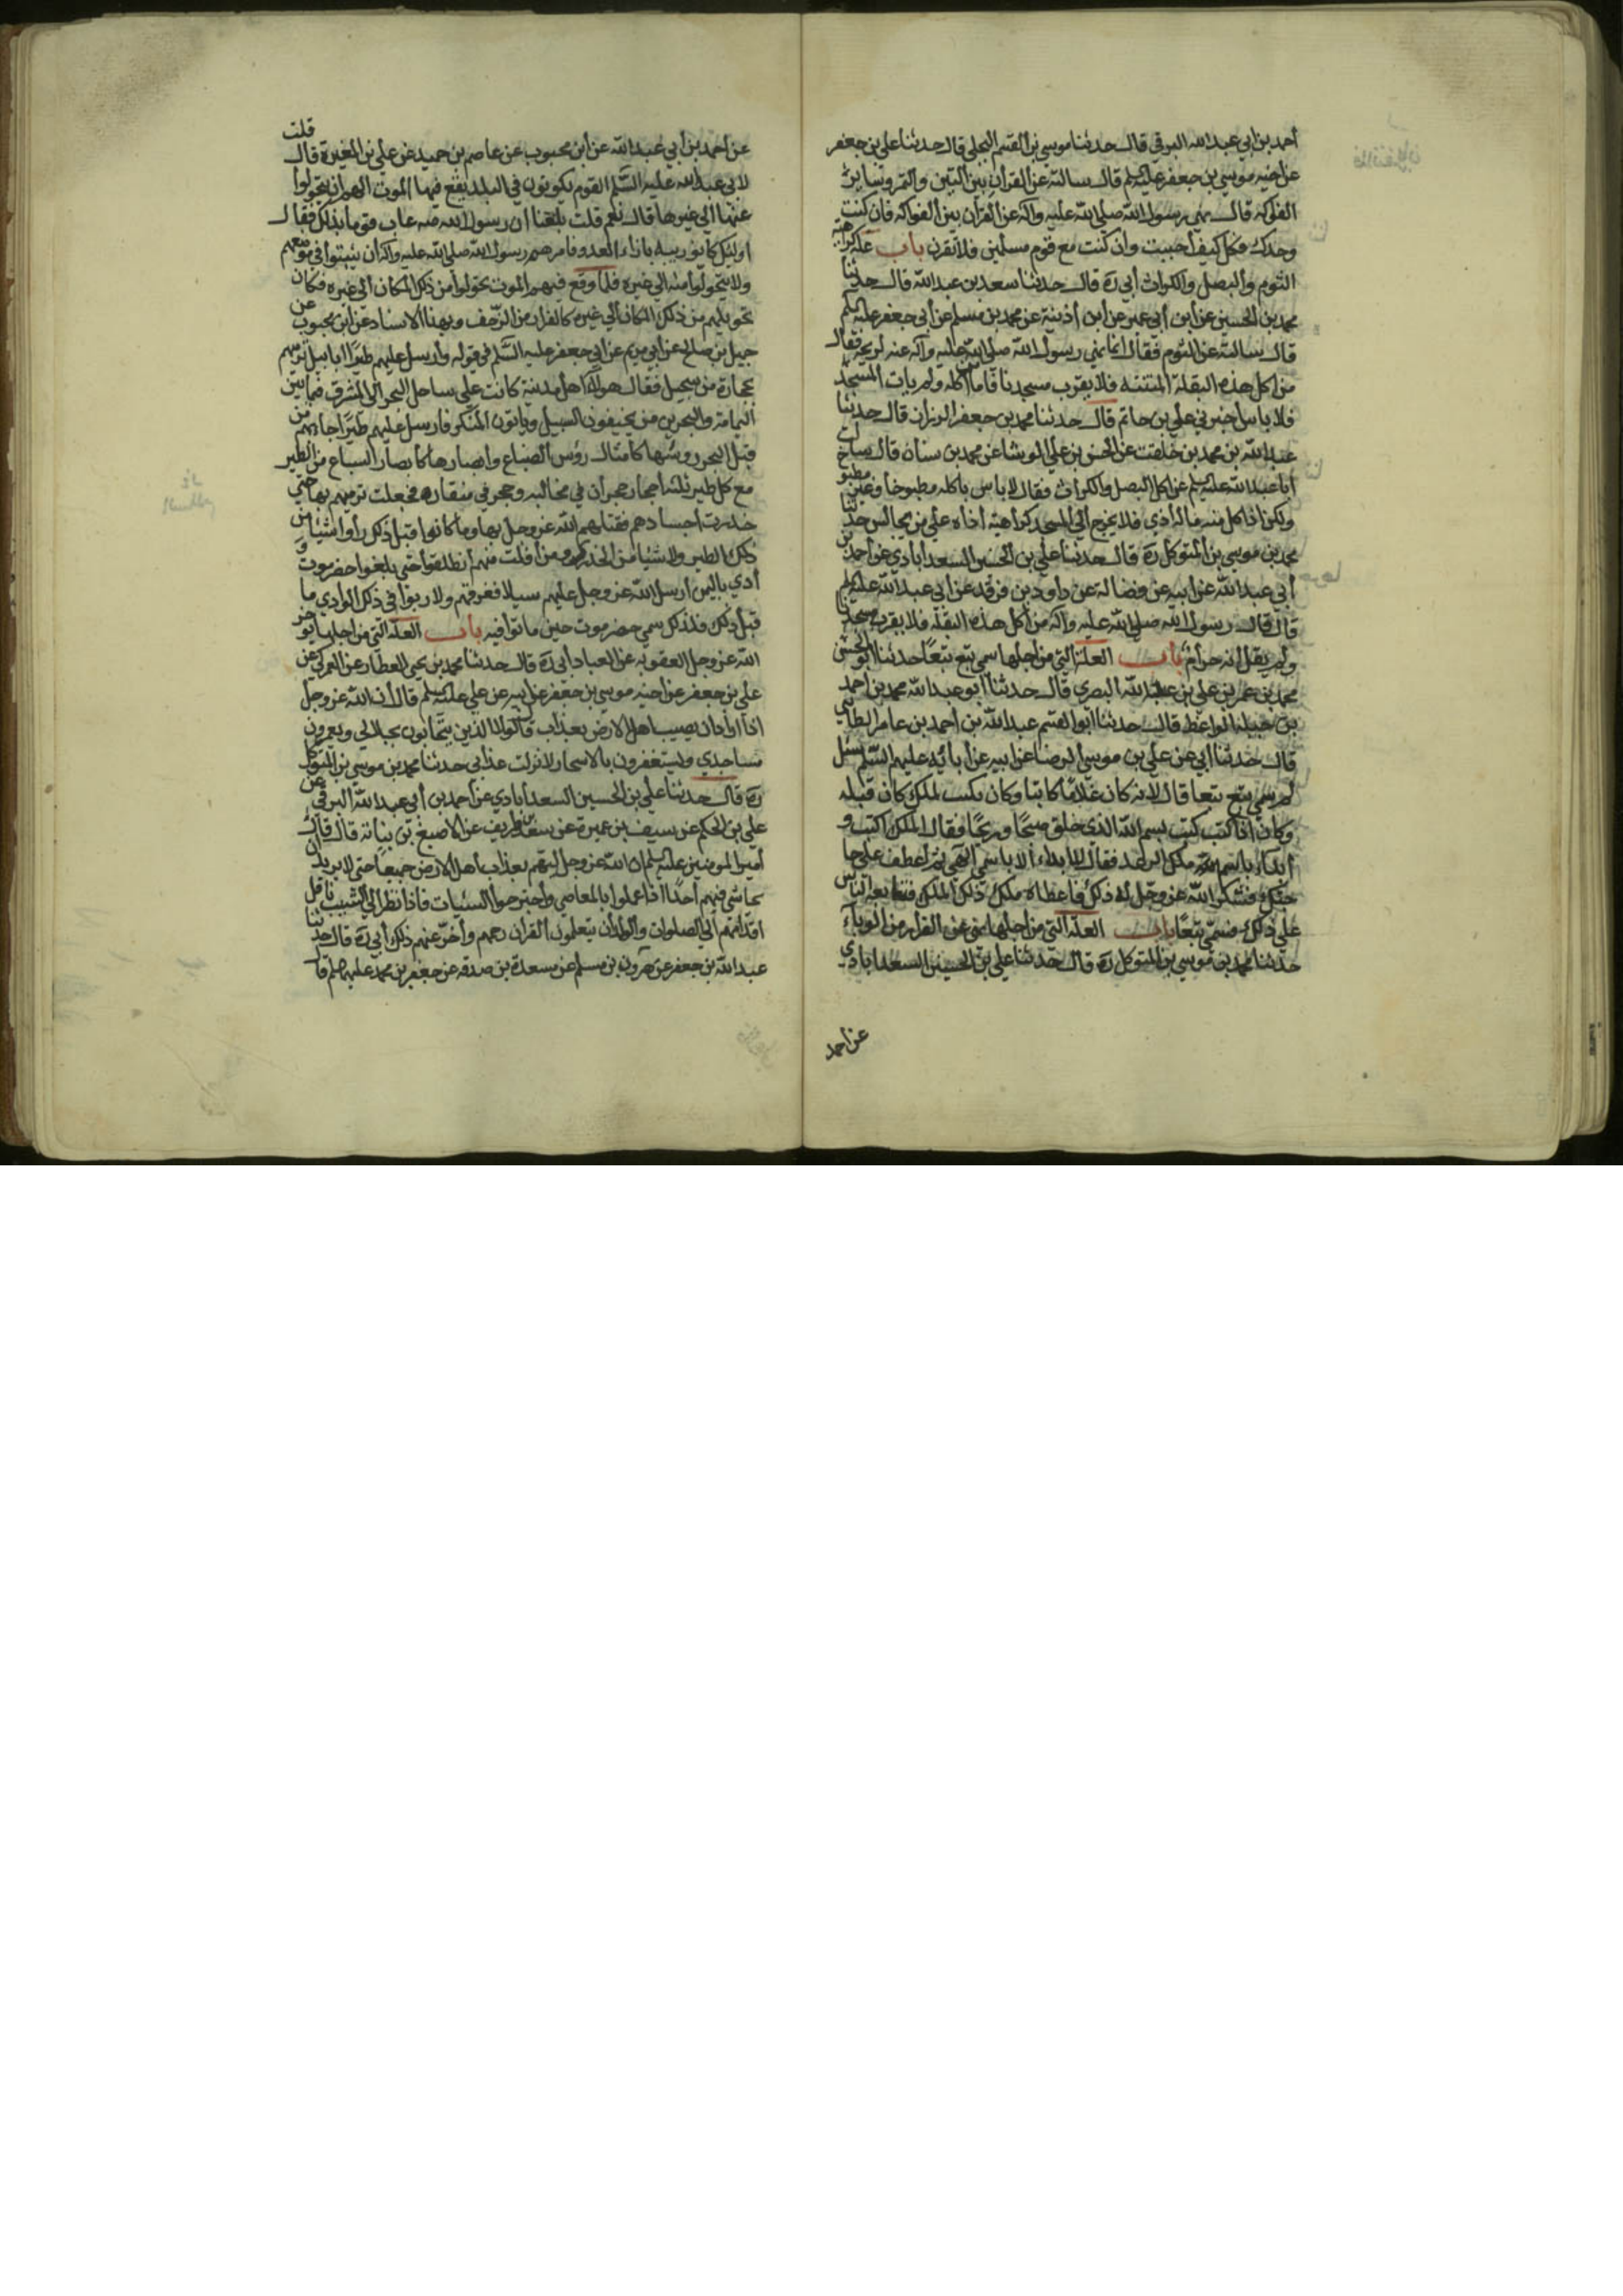 أحمد بن أبي عبد الله البرقي قال حدثنا موسى بن القسم البجلي قال حدثنا علي بن جعفر
عن اخيه موسى بن جعفر عليه السلم قال سالته عن القران بين التين والتمر وساير
الفاكهة قال نهى رسول الله صلى الله عليه وآله عن القران بين الفواكه فان كنت
وحدك فكل كيف أحببت وان كنت مع قوم مسلمين فلا تقرن باب علة كراهية
الثوم والبصل والكراث أبي ره قال حدثنا سعد بن عبد الله قال حدثنا
محمد بن الحسين عن ابن أبي عمير عن ابن أذينة عن محمد بن مسلم عن أبي جعفر عليه السلم
قال سالته عن الثوم فقال انما نهى رسول الله صلى الله عليه وآله عنه لريحه فقال
من اكل هذه البقلة المنتنه فلا يقرب مسجدنا فاما من اكله ولم يات المسجد
فلا باس اخبرني علي بن حاتم قال حدثنا محمد بن جعفر الرزاز قال حدثنا
عبد الله بن محمد بن خلف عن الحسن بن علي الوشا عن محمد بن سنان قال سالت
أبا عبد الله عليه السلم عن اكل البصل والكراث فقال لا باس باكله مطبوخا وغير مطبوخ
ولكن اذا اكل منه ماله أذى فلا يخرج الى المسجد كراهية اذاه على من يجالس حدثنا
محمد بن موسى بن المتوكل ره قال حدثنا علي بن الحسين السعدابادي عن أحمد بن
أبي عبد الله عن أبيه عن فضالة عن داود بن فرقد عن أبي عبد الله عليه السلم
قال قال رسول الله صلى الله عليه وآله من اكل هذه البقلة فلا يقرب مسجدنا
ولم يقل انه حرام باب العلة التي من اجلها سمي تبع تبعا حدثنا أبو الحسن
محمد بن عمر بن علي بن عبد الله البصري قال حدثنا أبو عبد الله محمد بن أحمد
بن جبلة الواعظ قال حدثنا أبو القسم عبد الله بن احمد بن عامر الطائي
قال حدثنا أبي عن علي بن موسى الرضا عن ابيه عن ابائه عليهم السلم سئل
لم سمي تبع تبعا قال لانه كان غلاما كاتبا وكان يكتب لملك كان قبله
وكان اذا كتب كتب بسم الله الذي خلق صبحا وريحا فقال الملك اكتب و
ابدأ باسم ملك الرعد فقال لا ابداء الا باسم الهي ثم اعطف على حا
جتك فشكر الله عز وجل له ذلك فاعطاه ملك ذلك الملك فتابعه الناس
على ذلك فسمي تبعا باب العلة التي من اجلها نهي عن الفرار من الوباء
حدثنا محمد بن موسى بن المتوكل ره قال حدثنا علي بن الحسين السعدابادي
عن احمد
قلت
عن احمد بن أبي عبد الله عن ابن محبوب عن عاصم بن حميد عن علي بن المغيرة قال
لابي عبد الله عليه السلم القوم يكونون في البلد يقع فيها الموت الهم ان يتحولوا
عنها الى غيرها قال نعم قلت بلغنا ان رسول الله صه عاب قوما بذلك فقال
اولئك كانوا ربيه بازاء العدو فامرهم رسول الله صلى الله عليه وآله ان يثبتوا في موضعهم
ولا يتحولوا منه الى غيره فلما وقع فيهم الموت تحولوا من ذلك المكان الى غيره فكان
تحويلهم من ذلك المكان الى غيره كالفرار من الزحف وبهذا الاسناد عن ابن محبوب عن
جميل بن صالح عن ابي مريم عن ابي جعفر عليه السلم في قوله وارسل عليهم طيرا ابابيل ترميهم
بحجارة من سجيل فقال هولاء اهل مدينة كانت على ساحل البحر الى المشرق فيما بين
اليمامة والبحرين من يخيفون السبيل وياتون المنكر فارسل عليهم طيرا جاءتهم من
قبل البحر روسها كامثال رؤس السباع وابصارها كابصار السباع من الطير
مع كل طير ثلثه أحجار حجران في مخالبه وحجر في منقاره فجعلت ترميهم بها حتى
جدرت اجسادهم فقتلهم الله عز وجل بها وما كانوا قبل ذلك رأوا شيئا من
ذلك الطير ولا شيئا من الجدري ومن افلت منهم انطلقوا حتى بلغوا حضرموت و
ادي باليمن ارسل الله عز وجل عليهم سيلا فغرقهم ولا راوا في ذلك الوادي ما
قبل ذلك فلذلك سمي حضرموت حين ماتوا فيه باب العلة التي من اجلها يؤخر
الله عز وجل العقوبه عن العباد أبي ره قال حدثنا محمد بن يحيى العطار عن العمركي عن
علي بن جعفر عن اخيه موسى بن جعفر عن ابيه عن علي عليه السلم قال ان الله عز وجل
اذا اراد ان يصيب اهل الارض بعذاب قال لولا الذين يتحابون بجلالي ويعمرون
مساجدي ويستغفرون بالاسحار لانزلت عذابي حدثنا محمد بن موسى بن المتوكل
ره قال حدثنا علي بن الحسين السعدابادي عن أحمد بن أبي عبد الله البرقي عن
علي بن الحكم عن سيف بن عميرة عن سعد بن طريف عن الاصبغ بن نباتة قال قال
أمير المومنين عليه السلم ان الله عز وجل ليهم بعذاب اهل الارض جميعا حتى لا يريد ان
يحاشي فيهم أحدا اذا عملوا بالمعاصي واجترحوا السيئات فاذا نظر الى الشيب ناقلي
اقدامهم الى الصلوات والولدان يتعلمون القران رحمهم وأخر عنهم ذلك أبي ره قال حدثنا
عبد الله بن جعفر عن هرون بن مسلم عن مسعدة بن صدقه عن جعفر بن محمد عليهما السلم قال